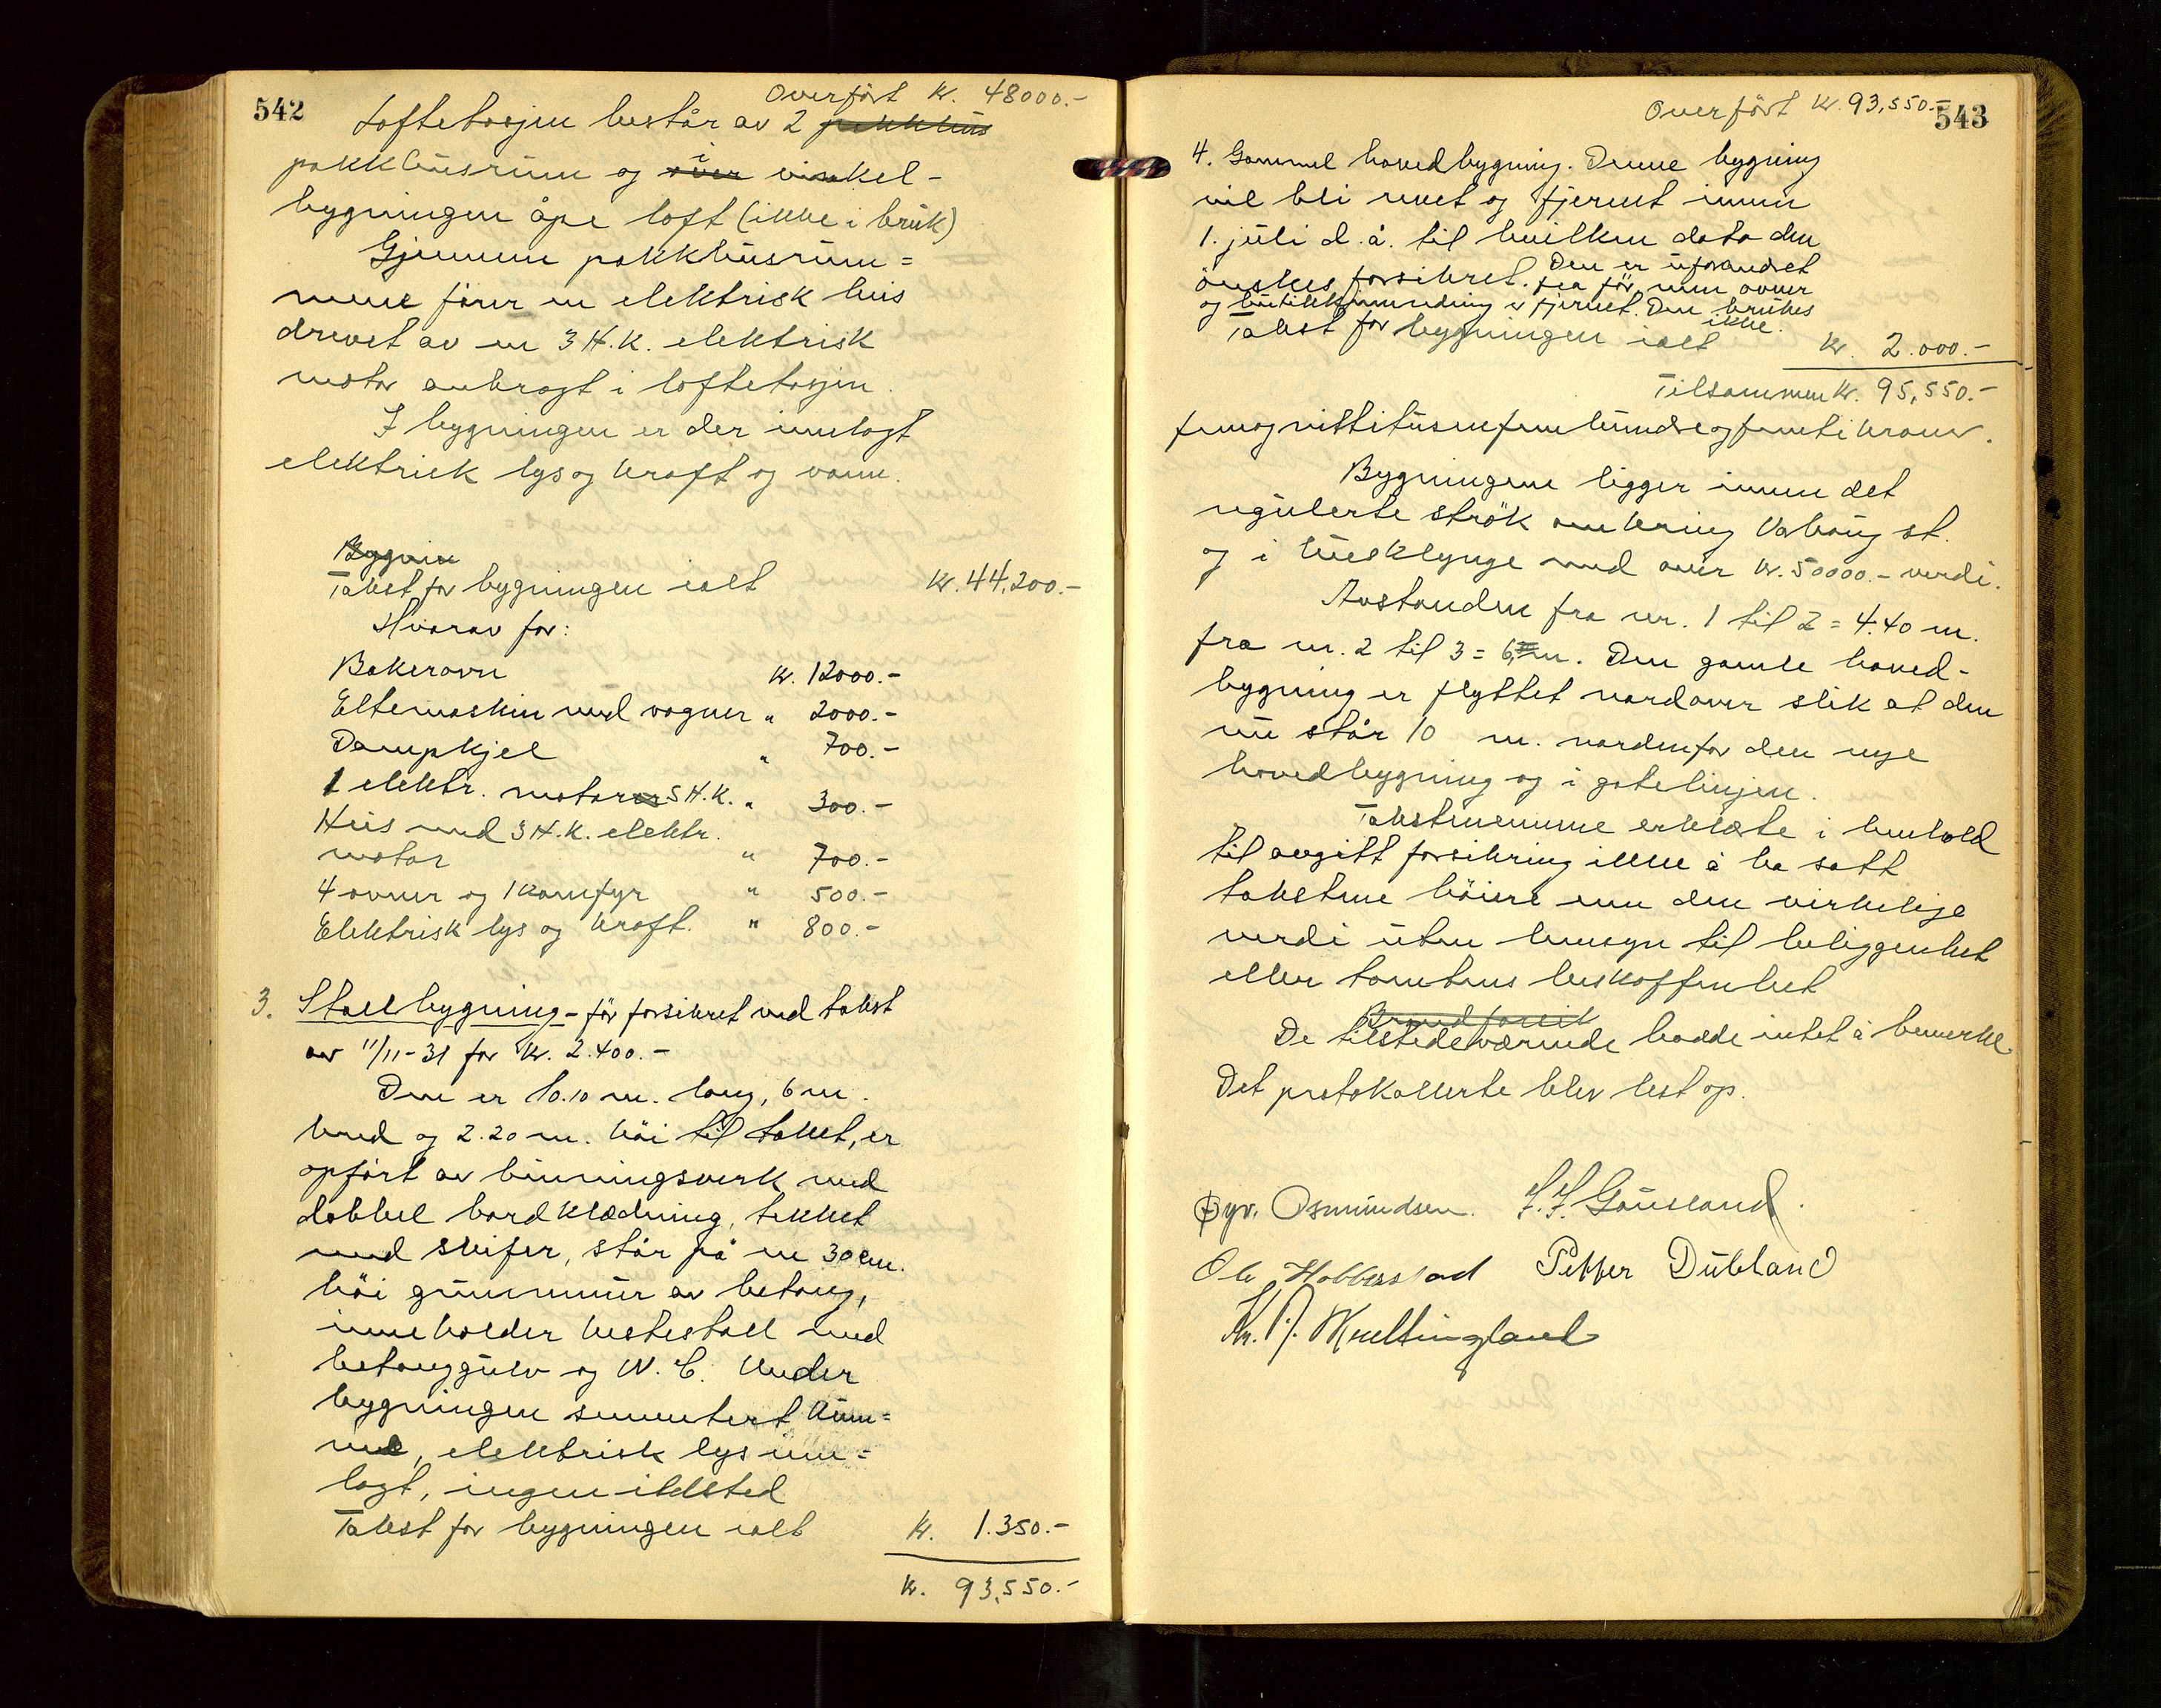 542
Overført kr. 48000.-
Loftetasjen består av 2 pakkhus
pakkhusrum og i over vinkel-
bygningen åpe loft (ikke i bruk)
Gjennem pakkhusrum=
mene fører en elektrisk heis
drevet av en 3 H.K. elektrisk
motor anbragt i loftetasjen.
I bygningen er der innlagt
elektrisk lys og kraft og vann.
Bygnin
Takst for bygningen ialt kr. 44,200.-
Hvorav for:
Bakerovn kr. 12000.-
Eltemaskin med vogner " 2000.-
Dampkjel " 700.-
1 elektr. motorer 5 H.K. " 300.-
Heis med 3 H.K. elektr.
motor " 700.-
4 ovner og 1 komfyr " 500.-
Elektrisk lys og kraft. " 800.-
3. Stallbygning - før forsikret ved takst
av 11/11-31 for kr. 2.400.-
Den er 10.10 m. lang, 6 m.
bred og 2.20 m. høi til taket, er
opført av binningsverk med
dobbel bordklædning, tekket
med skifer, står på en 30 cm.
høi grunnmur av betong,
inneholder hestestall med
betonggulv og W.C. Under
bygningen sementert kum=
me, elektrisk lys inn=
lagt, ingen ildsted
Takst for bygningen ialt kr. 1.350.-
kr. 93,550.-
543
Overført kr. 93,550.-
4. Gammel hovedbygning. Denne bygning
vil bli revet og fjernet innen
1. juli d.å. til hvilken dato den
ønskes forsikret. Den er uforandret
fra før, men ovner
og butikkinnredning er fjernet. Den brukes
ikke.
Takst for bygningen ialt kr. 2.000.-
Tilsammen kr. 95,550.-
femognittitusenfemhundreogfemtikroner.
Bygningene ligger innen det
regulerte strøk omkring Varhaug st.
og i husklynge med over kr. 50000.- verdi.
Avstanden fra nr. 1 til 2 = 4.40 m.
fra nr. 2 til 3 = 6, m. Den gamle hoved-
bygning er flyttet nordover slik at den
nu står 10 m. nordenfor den nye
hovedbygning og i gatelinjen.
Takstmennene erklæte i henhold
til avgitt forsikring ikke å ha satt
takstene høiere enn den virkelige
verdi uten hensyn til beliggenhet
eller tomtens beskaffenhet
De tilstedeværende hadde intet å bemerke.
Det protokollerte blev lest op.
Øyv. Osmundsen. J. J. Gausland.
Ole Hobberstad Petter Dubland